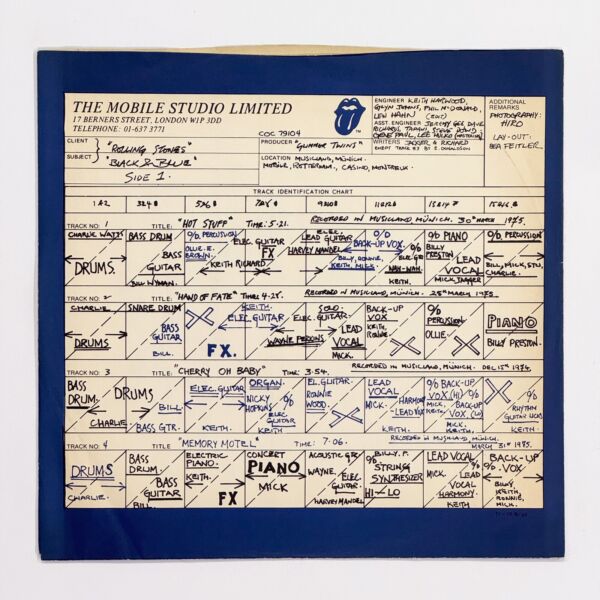 THE MOBILE STUDIO LIMITED
17 BERNERS STREET, LONDON W1P 3DD
TELEPHONE: 01-637 3771
COC 79104
ENGINEER KEITH HARWOOD,
GLYN JOHNS, PHIL McDONALD,
LEW HAHN
ASST ENGINEER JEREMY GEE, DAVE
WRITERS JAGGER & RICHARD
ADDITIONAL
REMARKS
PHOTOGRAPHY:
HIRO
LAY-OUT:
BEA FEITLER
CLIENT "ROLLING STONES"
SUBJECT "BLACK & BLUE"
SIDE 1.
PRODUCER "GLIMMER TWINS"
LOCATION MUSICLAND, MUNICH.
MOBILE, ROTTERDAM, CASINO, MONTREUX
TRACK IDENTIFICATION CHART
TRACK NO. 1 TITLE: "HOT STUFF" TIME: 5.21. RECORDED IN MUSICLAND MUNICH. 30TH MARCH 1975.
CHARLIE WATTS
DRUMS.
BASS DRUM
BASS
GUITAR
BILL WYMAN.
O/D PERCUSSION
OLLIE. E.
BROWN.
KEITH RICHARD
ELEC. GUITAR
FX
ELEC.
LEAD GUITAR
HARVEY MANDEL
O/D
BACK-UP VOX.
BILLY, RONNIE,
KEITH, MICK.
WAH-WAH
KEITH.
O/D PIANO
BILLY
PRESTON
LEAD
VOCAL
MICK JAGGER
O/D PERCUSSION
BILL, MICK,
CHARLIE.
TRACK NO. 2 TITLE: "HAND OF FATE" TIME: 4-28. RECORDED IN MUSICLAND, MUNICH. 25TH MARCH 1975.
CHARLIE
DRUMS
SNARE DRUM
BASS
GUITAR
BILL.
FX.
KEITH.
ELEC GUITAR
WAYNE PERKINS
SOLO.
ELEC. GUITAR.
LEAD
VOCAL
MICK.
BACK-UP
VOX
KEITH,
RONNIE.
O/D
PERCUSSION
OLLIE
PIANO
BILLY PRESTON.
TRACK NO. 3 TITLE: "CHERRY OH BABY" TIME: 3.54. RECORDED IN MUSICLAND, MUNICH. DEC 15TH 1974.
BASS
DRUM.
CHARLIE
DRUMS
BILL.
BASS GTR.
ELEC. GUITAR
KEITH.
ORGAN.
NICKY
HOPKINS
O/D
ELEC
GUITAR
KEITH
EL. GUITAR
RONNIE
WOOD.
LEAD
VOCAL
MICK.
HARMONY
LEAD VOX
KEITH.
O/D BACK-UP
VOX (HI)
O/D BACK-UP
VOX. (LO)
MICK.
KEITH
O/D
RHYTHM
GUITAR
KEITH.
TRACK NO. 4 TITLE: "MEMORY MOTEL" TIME: 7.06. RECORDED IN MUSICLAND, MUNICH.
MARCH 31ST 1975.
DRUMS
CHARLIE.
BASS
DRUM.
BASS
GUITAR
BILL
ELECTRIC
PIANO.
KEITH.
FX
CONCERT
PIANO
MICK
ACOUSTIC GTR
WAYNE.
ELEC.
GUITAR.
HARVEY MANDEL
BILLY. P.
O/D
STRING
SYNTHESIZER
HI - LO
LEAD VOCAL
MICK
O/D
LEAD
VOCAL
HARMONY
KEITH
BACK-UP
O/D VOX.
BILLY,
KEITH
RONNIE,
MICK.